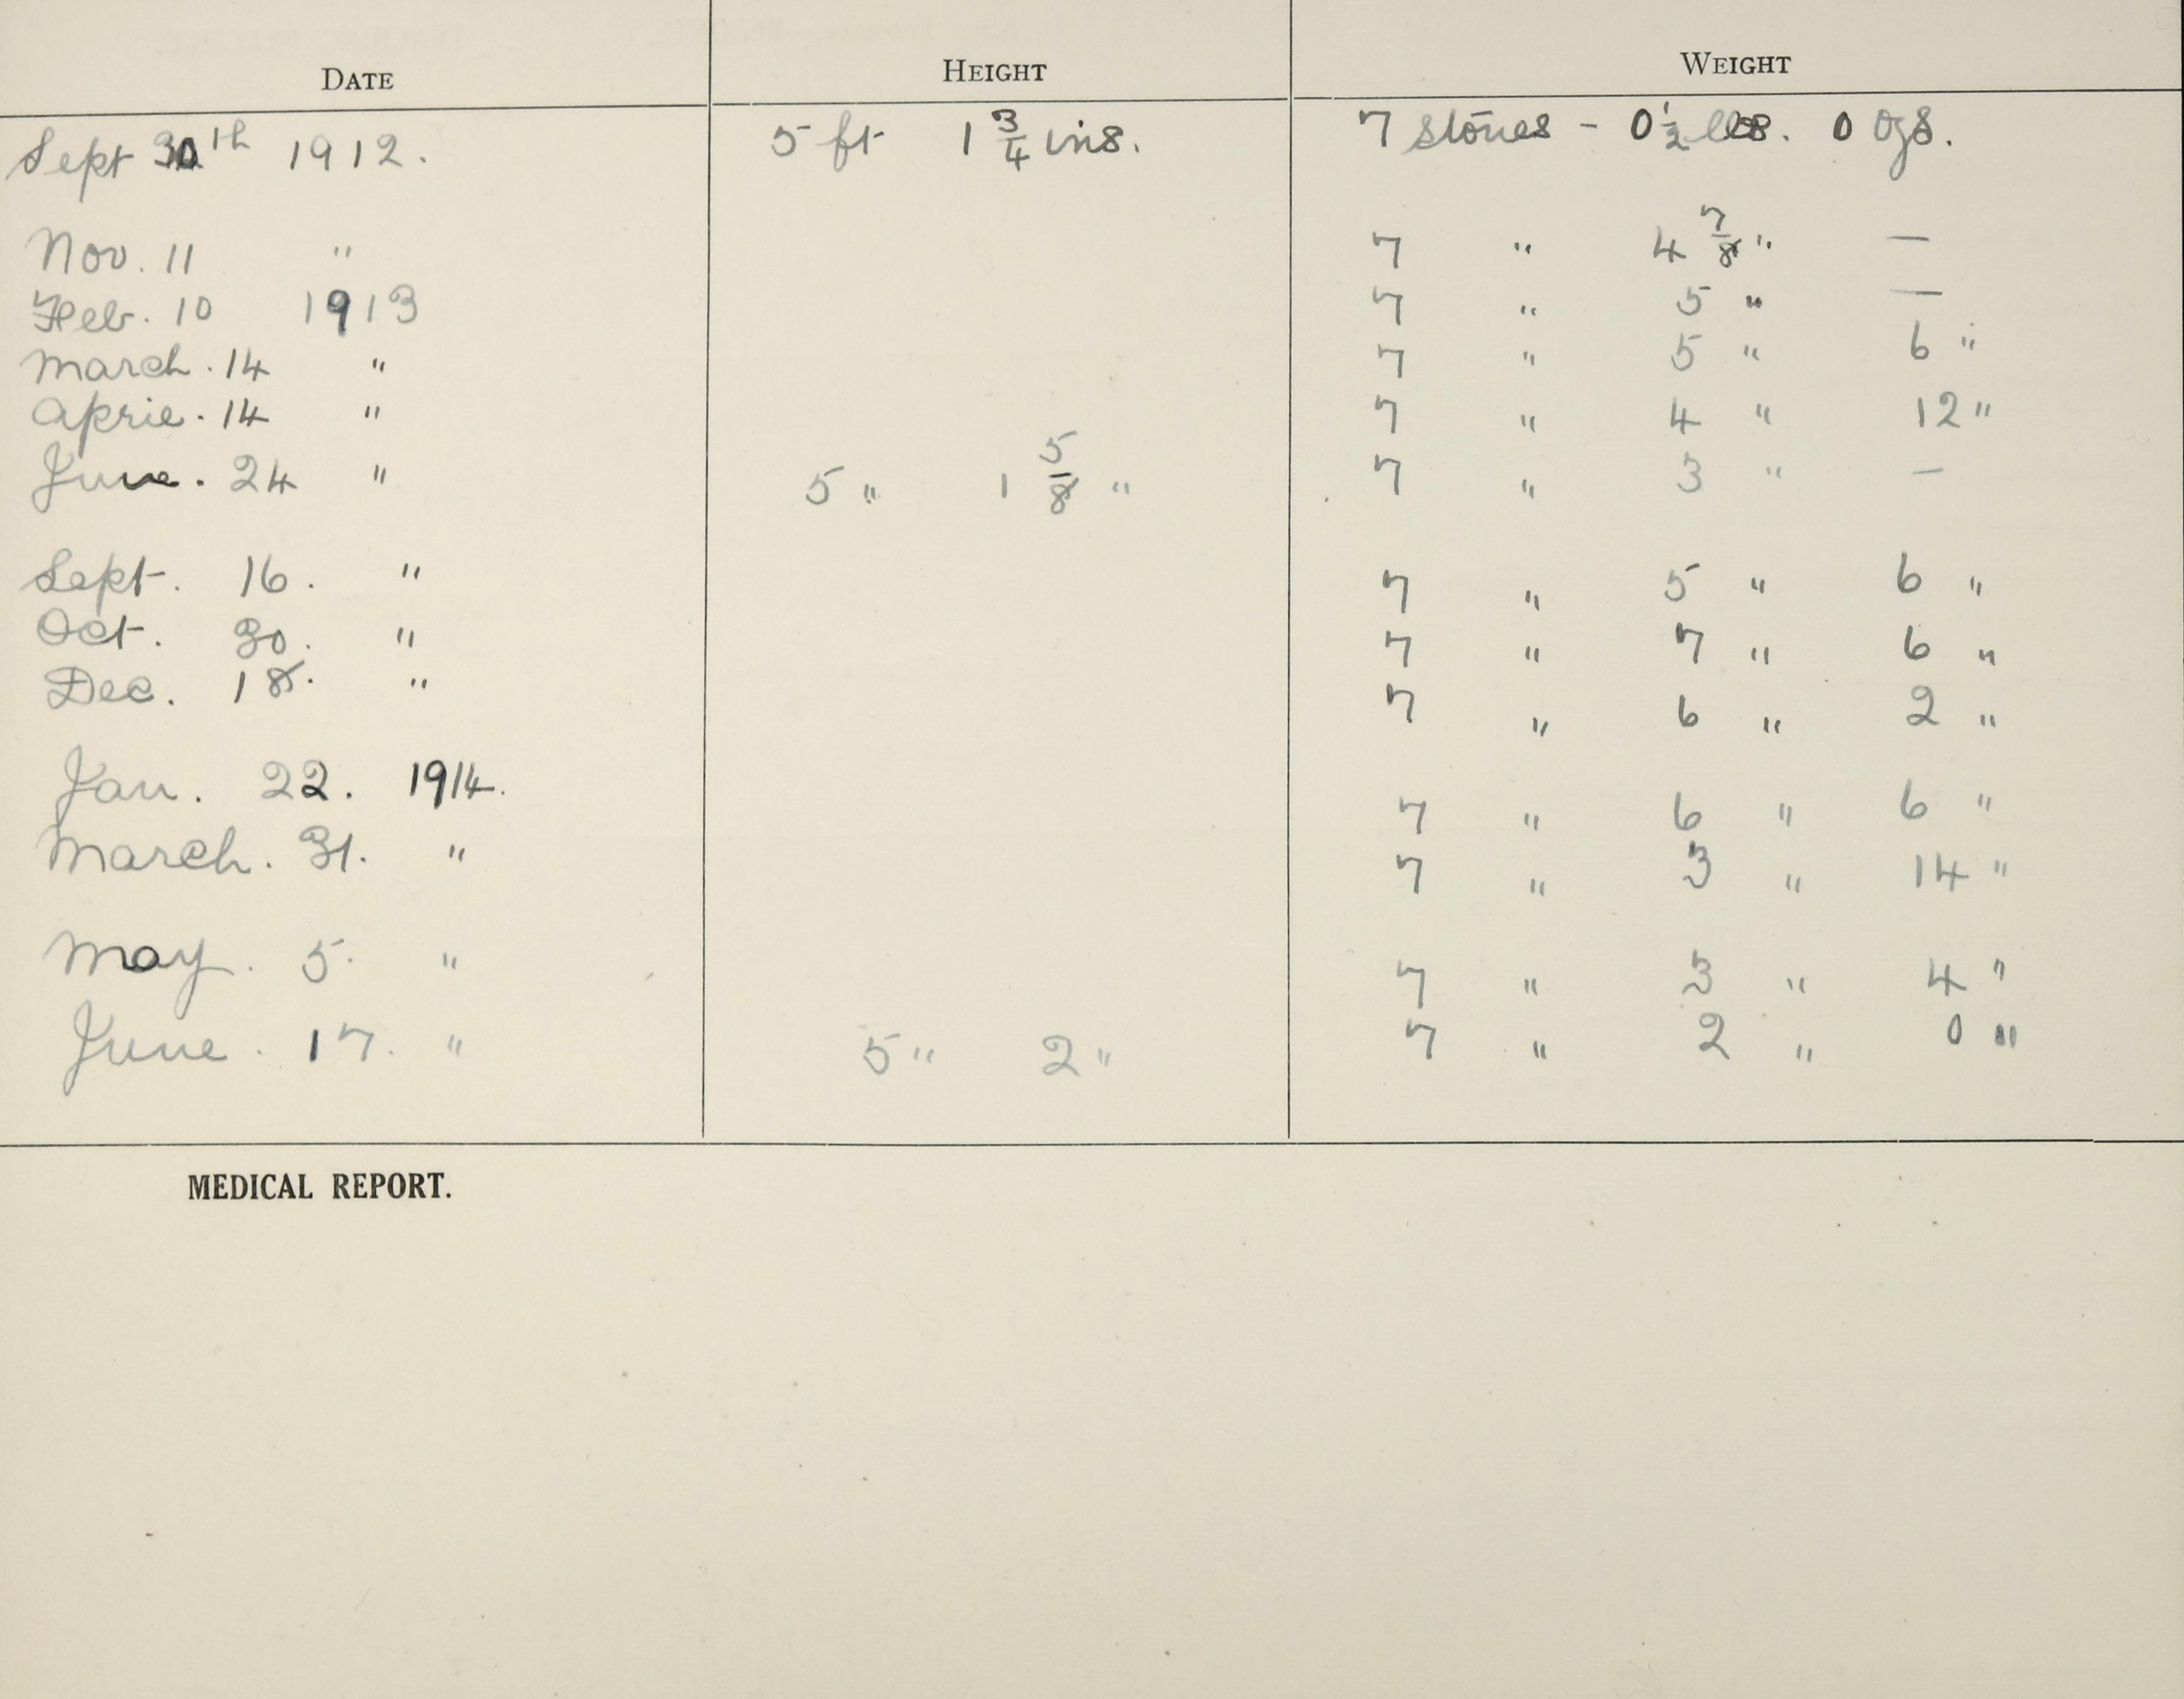 DATE HEIGHT WEIGHT
Sept 30th 1912. 5 ft 1 3/4 ins. 7 stones - 0 1/2 lbs. 0 ozs.
Nov. 11 " 7 " 4 7/8 " —
Feb. 10 1913 7 " 5 " —
March. 14 " 7 " 5 " 6 "
April. 14 " 7 " 4 " 12 "
June. 24 " 5 " 1 5/8 " 7 " 3 " —
Sept. 16. " 7 " 5 " 6 "
Oct. 30. " 7 " 7 " 6 "
Dec. 18. " 7 " 6 " 2 "
Jan. 22. 1914. 7 " 6 " 6 "
March. 31. " 7 " 3 " 14 "
May. 5. " 7 " 3 " 4 "
June. 17. " 5 " 2 " 7 " 2 " 0 "
MEDICAL REPORT.